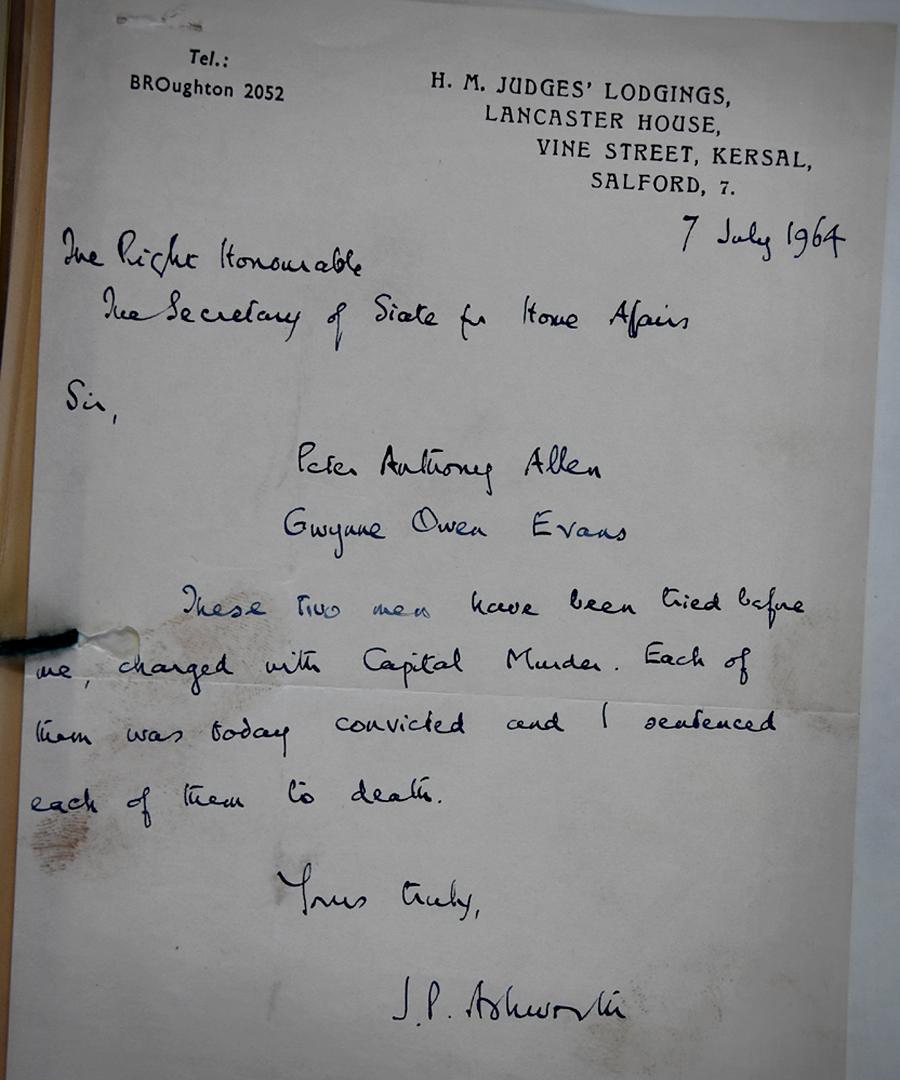 Tel.:
BROughton 2052
H. M. JUDGES' LODGINGS,
LANCASTER HOUSE,
VINE STREET, KERSAL,
SALFORD, 7.
7 July 1964
The Right Honourable
The Secretary of State for Home Affairs
Sir,
Peter Anthony Allen
Gwynne Owen Evans
These two men have been tried before
me, charged with Capital Murder. Each of
them was today convicted and I sentenced
each of them to death.
Yours truly,
J.P. Ashworth